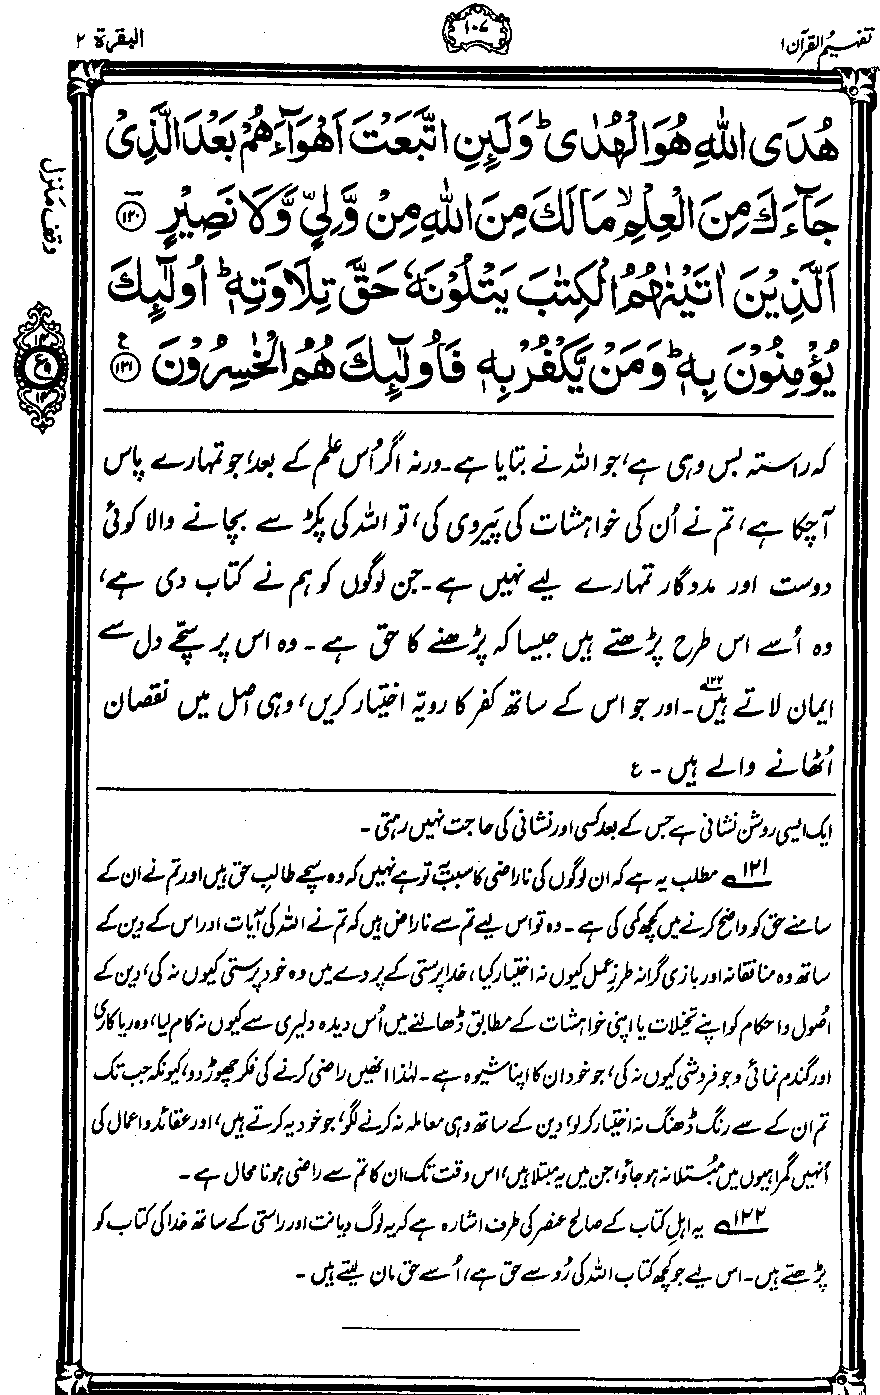 تفہیم القرآن ۱
۱۰۷
البقرة ۲
هُدَى اللّٰهِ هُوَ الْهُدٰى ؕ وَلَئِنِ اتَّبَعْتَ اَهْوَآءَهُمْ بَعْدَ الَّذِىْ
جَآءَكَ مِنَ الْعِلْمِ ۙ مَا لَكَ مِنَ اللّٰهِ مِنْ وَّلِىٍّ وَّلَا نَصِيْرٍ ﴿۱۲۰﴾
وقف منزل
اَلَّذِيْنَ اٰتَيْنٰهُمُ الْكِتٰبَ يَتْلُوْنَهٗ حَقَّ تِلَاوَتِهٖ ؕ اُولٰٓئِكَ
يُؤْمِنُوْنَ بِهٖ ؕ وَمَنْ يَّكْفُرْ بِهٖ فَاُولٰٓئِكَ هُمُ الْخٰسِرُوْنَ ﴿۱۲۱﴾ ع
کہ راستہ بس وہی ہے، جو اللہ نے بتایا ہے۔ ورنہ اگر اُس علم کے بعد، جو تمہارے پاس
آچکا ہے، تم نے اُن کی خواہشات کی پَیروی کی، تو اللہ کی پکڑ سے بچانے والا کوئی
دوست اور مددگار تمہارے لیے نہیں ہے۔ جن لوگوں کو ہم نے کتاب دی ہے،
وہ اُسے اس طرح پڑھتے ہیں جیسا کہ پڑھنے کا حق ہے۔ وہ اس پر سچّے دل سے
ایمان لاتے ہیں۱۲۲۔ اور جو اس کے ساتھ کفر کا رویّہ اختیار کریں، وہی اصل میں نقصان
اُٹھانے والے ہیں۔ ع
ایک ایسی روشن نشانی ہے جس کے بعد کسی اور نشانی کی حاجت نہیں رہتی۔
۱۲۱؎ مطلب یہ ہے کہ ان لوگوں کی ناراضی کا سبب یہ تو ہے نہیں کہ وہ سچے طالبِ حق ہیں اور تم نے ان کے
سامنے حق کو واضح کرنے میں کچھ کمی کی ہے۔ وہ تو اس لیے تم سے ناراض ہیں کہ تم نے اللہ کی آیات اور اس کے دین کے
ساتھ وہ منافقانہ اور بازی گرانہ طرزِ عمل کیوں نہ اختیار کیا، خدا پرستی کے پردے میں وہ خود پرستی کیوں نہ کی، دین کے
اُصول و احکام کو اپنے تخیلات یا اپنی خواہشات کے مطابق ڈھالنے میں اُس دیدہ دلیری سے کیوں نہ کام لیا، وہ ریاکاری
اور گندم نمائی و جو فروشی کیوں نہ کی، جو خود ان کا اپنا شیوہ ہے۔ لہٰذا انھیں راضی کرنے کی فکر چھوڑ دو، کیونکہ جب تک
تم ان کے سے رنگ ڈھنگ نہ اختیار کرلو، دین کے ساتھ وہی معاملہ نہ کرنے لگو، جو خود یہ کرتے ہیں، اور عقائد و اعمال کی
اُنھیں گمراہیوں میں مُبتلا نہ ہو جاؤ، جن میں یہ مبتلا ہیں، اس وقت تک ان کا تم سے راضی ہونا محال ہے۔
۱۲۲؎ یہ اہلِ کتاب کے صالح عنصر کی طرف اشارہ ہے کہ یہ لوگ دیانت اور راستی کے ساتھ خدا کی کتاب کو
پڑھتے ہیں۔ اس لیے جو کچھ کتاب اللہ کی رُو سے حق ہے، اُسے حق مان لیتے ہیں۔